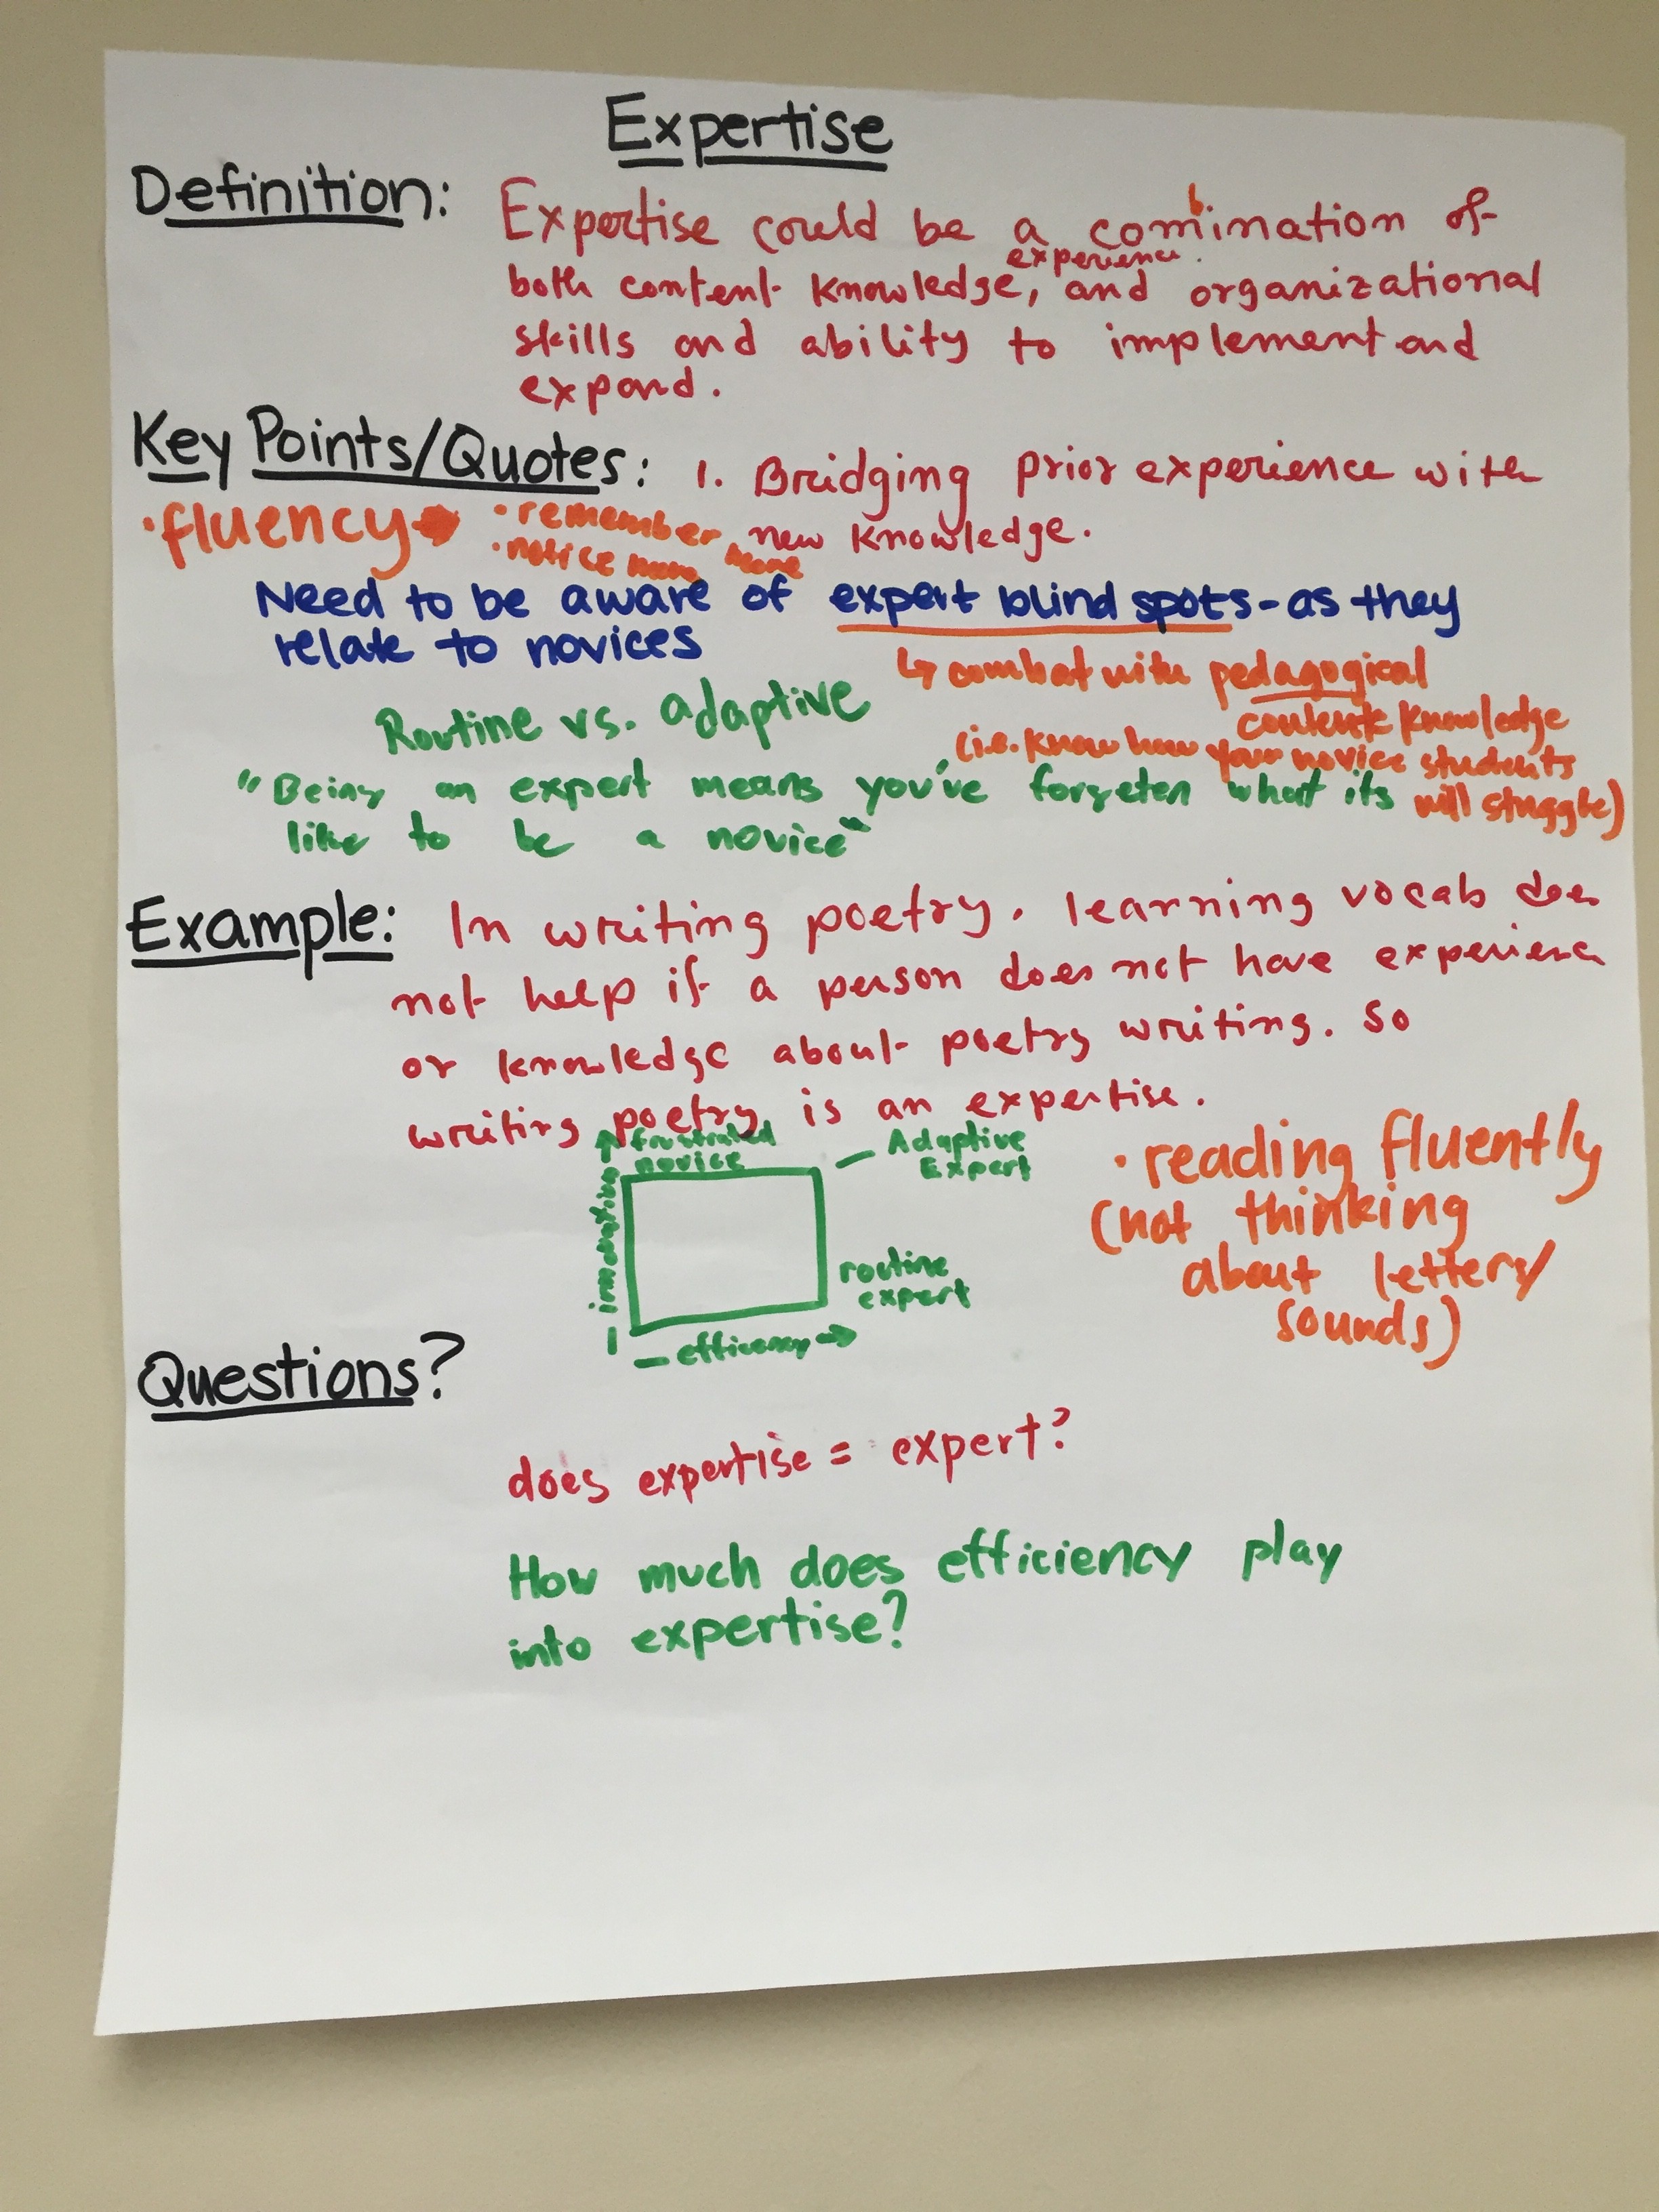 Expertise
Definition: Expertise could be a combination of
both content knowledge, experience and organizational
skills and ability to implement and
expand.
Key Points/Quotes: 1. Bridging prior experience with
new knowledge.
• fluency → • remember more
• notice more
Need to be aware of expert blind spots - as they
relate to novices
↳ combat with pedagogical
content knowledge
(i.e. know how your novice students
will stuggle)
Routine vs. adaptive
"Being an expert means you've forgeten what its
like to be a novice"
Example: In writing poetry, learning vocab does
not help if a person does not have experience
or knowledge about poetry writing. So
writing poetry is an expertise.
frustrated
novice
Adaptive
Expert
routine
expert
efficency →
• reading fluently
(not thinking
about letters/
sounds)
Questions?
does expertise = expert?
How much does efficiency play
into expertise?